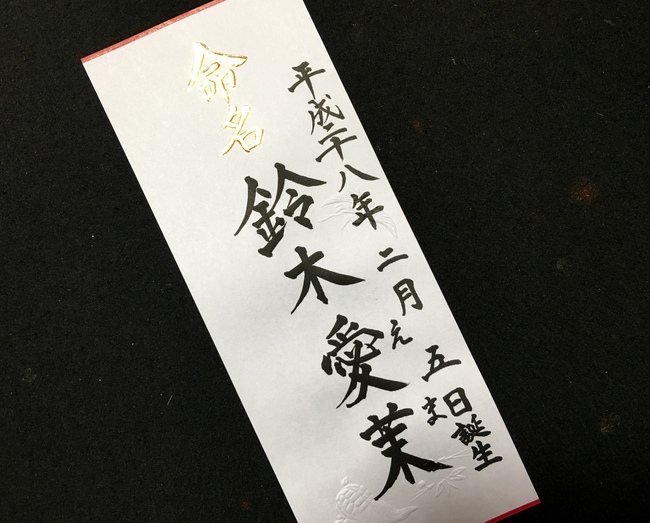 平成二十八年 二月 五日誕生
命名
鈴木愛茉
えま